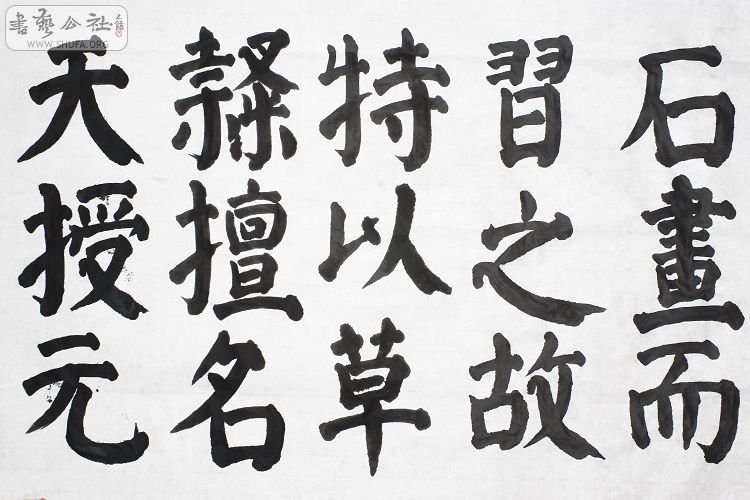 石畫而
習之故
特以草
隸擅名
天授元
書藝公社
WWW.SHUFA.ORG